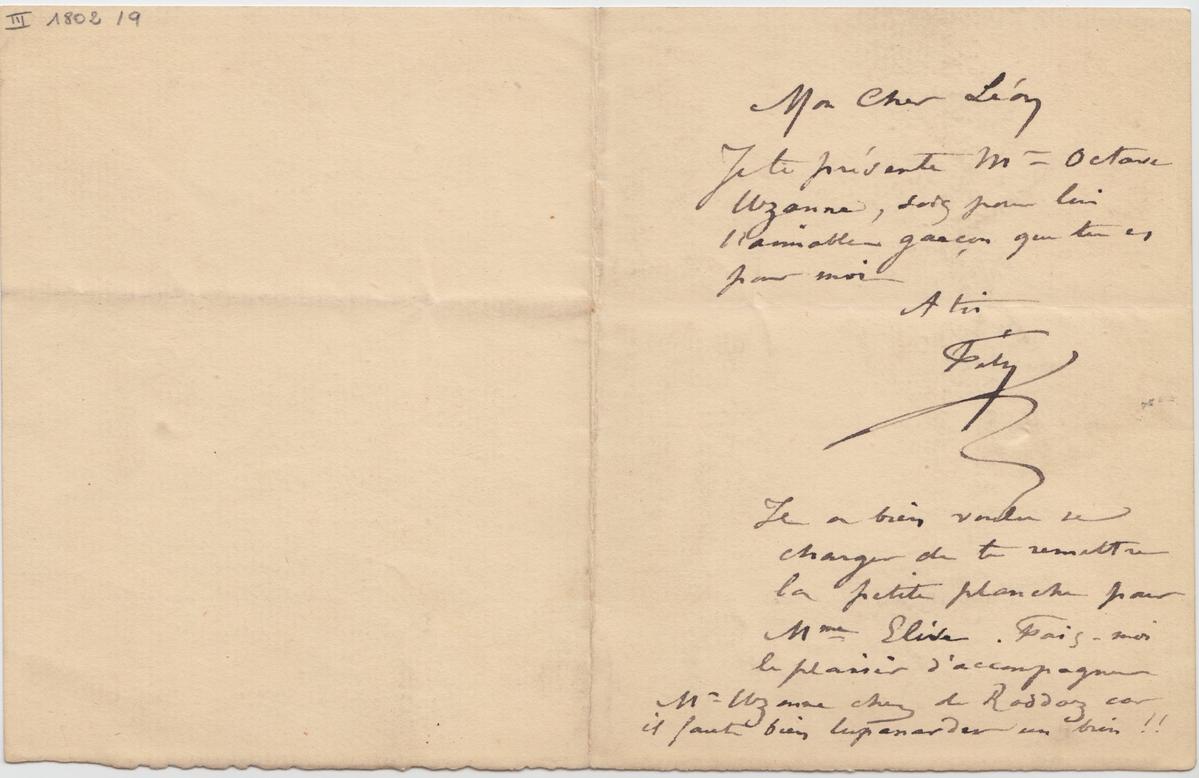 III 1802 /9
Mon Cher Léon
Je te présente Mr Octave
Uzanne, sois pour lui
l'aimable garçon que tu es
pour moi
A toi
Fély
Il a bien voulu se
charger de te remettre
la petite planche pour
Mme Elise. Fais-moi
le plaisir d'accompagner
Mr Uzanne chez de
car
il faut bien lupanarder un brin !!